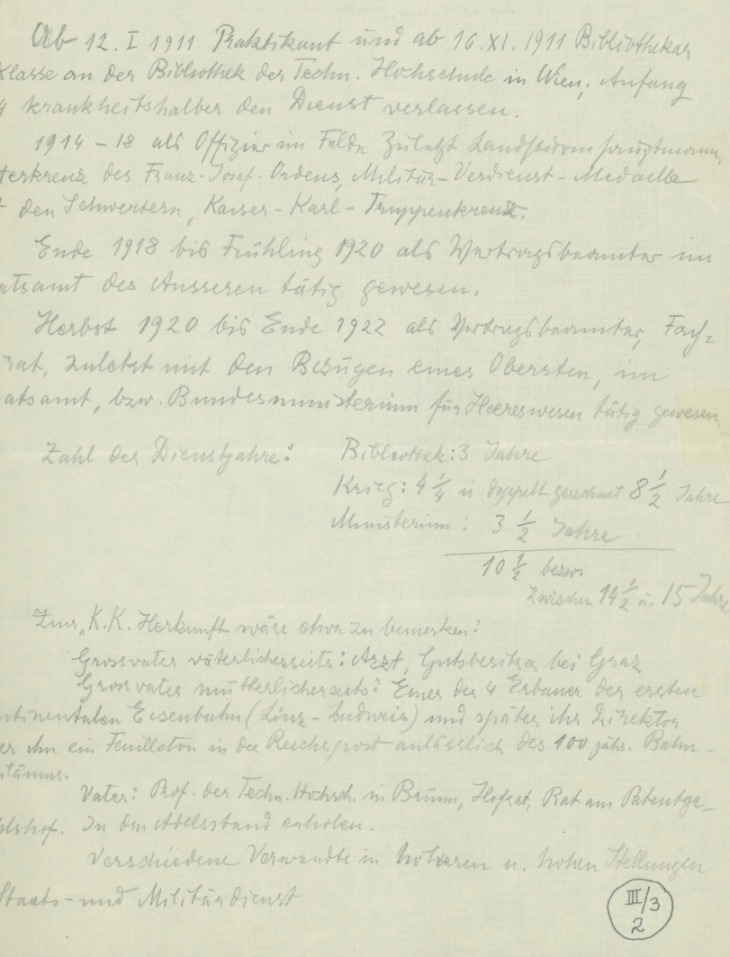 Ab 12. I 1911 Praktikant und ab 16. XI. 1911 Bibliothekar
Klasse an der Bibliothek der Techn. Hochschule in Wien; Anfang
4 krankheitshalber den Dienst verlassen.
1914 – 18 als Offizier im Felde zuletzt Landsturmhauptmann,
tterkreuz des Franz-Josef-Ordens, Militär-Verdienst-Medaille
t den Schwertern, Kaiser-Karl-Truppenkreuz.
Ende 1918 bis Frühling 1920 als Vertragsbeamter im
atsamt des Äusseren tätig gewesen.
Herbst 1920 bis Ende 1922 als Vertragsbeamter, Fach=
rat, zuletzt mit den Bezügen eines Obersten, im
atsamt, bzw. Bundesministerium für Heereswesen tätig gewesen.
Zahl der Dienstjahre: Bibliothek: 3 Jahre
Krieg: 4 1/4 u doppelt gerechnet 8 1/2 Jahre
Ministerium: 3 1/2 Jahre
10 1/2 bezw.
zwischen 14 1/2 u. 15 Jahre
Zur K.K. Herkunft wäre etwa zu bemerken:
Grossvater väterlicherseits: Arzt, Gutsbesitzer bei Graz
Grossvater mütterlicherseits: Einer der 4 Erbauer der ersten
ntinentalen Eisenbahn (Linz-Budweis) und später ihr Direktor
er ihn ein Feuilleton in der Reichspost anlässlich des 100 jähr. Bahn-
iläums.
Vater: Prof. der Techn. Hochsch. in Brünn, Hofrat, Rat am Patentge-
htshof. In den Adelsstand erhoben.
Verschiedene Verwandte in höheren u. hohen Stellungen
Staats- und Militärdienst
III/3
2